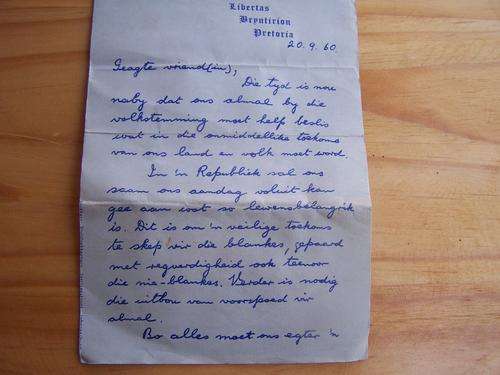 Libertas
Bryntirion
Pretoria
20.9.60.
Geagte vriend(in),
Die tyd is nou
naby dat ons almal by die
volkstemming moet help beslis
wat in die onmiddellike toekoms
van ons land en volk moet word.
In 'n Republiek sal ons
saam ons aandag voluit kan
gee aan wat so lewensbelangrik
is. Dit is om 'n veilige toekoms
te skep vir die blankes, gepaard
met regverdigheid ook teenoor
die nie-blankes. Verder is nodig
die uitbou van voorspoed vir
almal.
Bo alles moet ons egter 'n